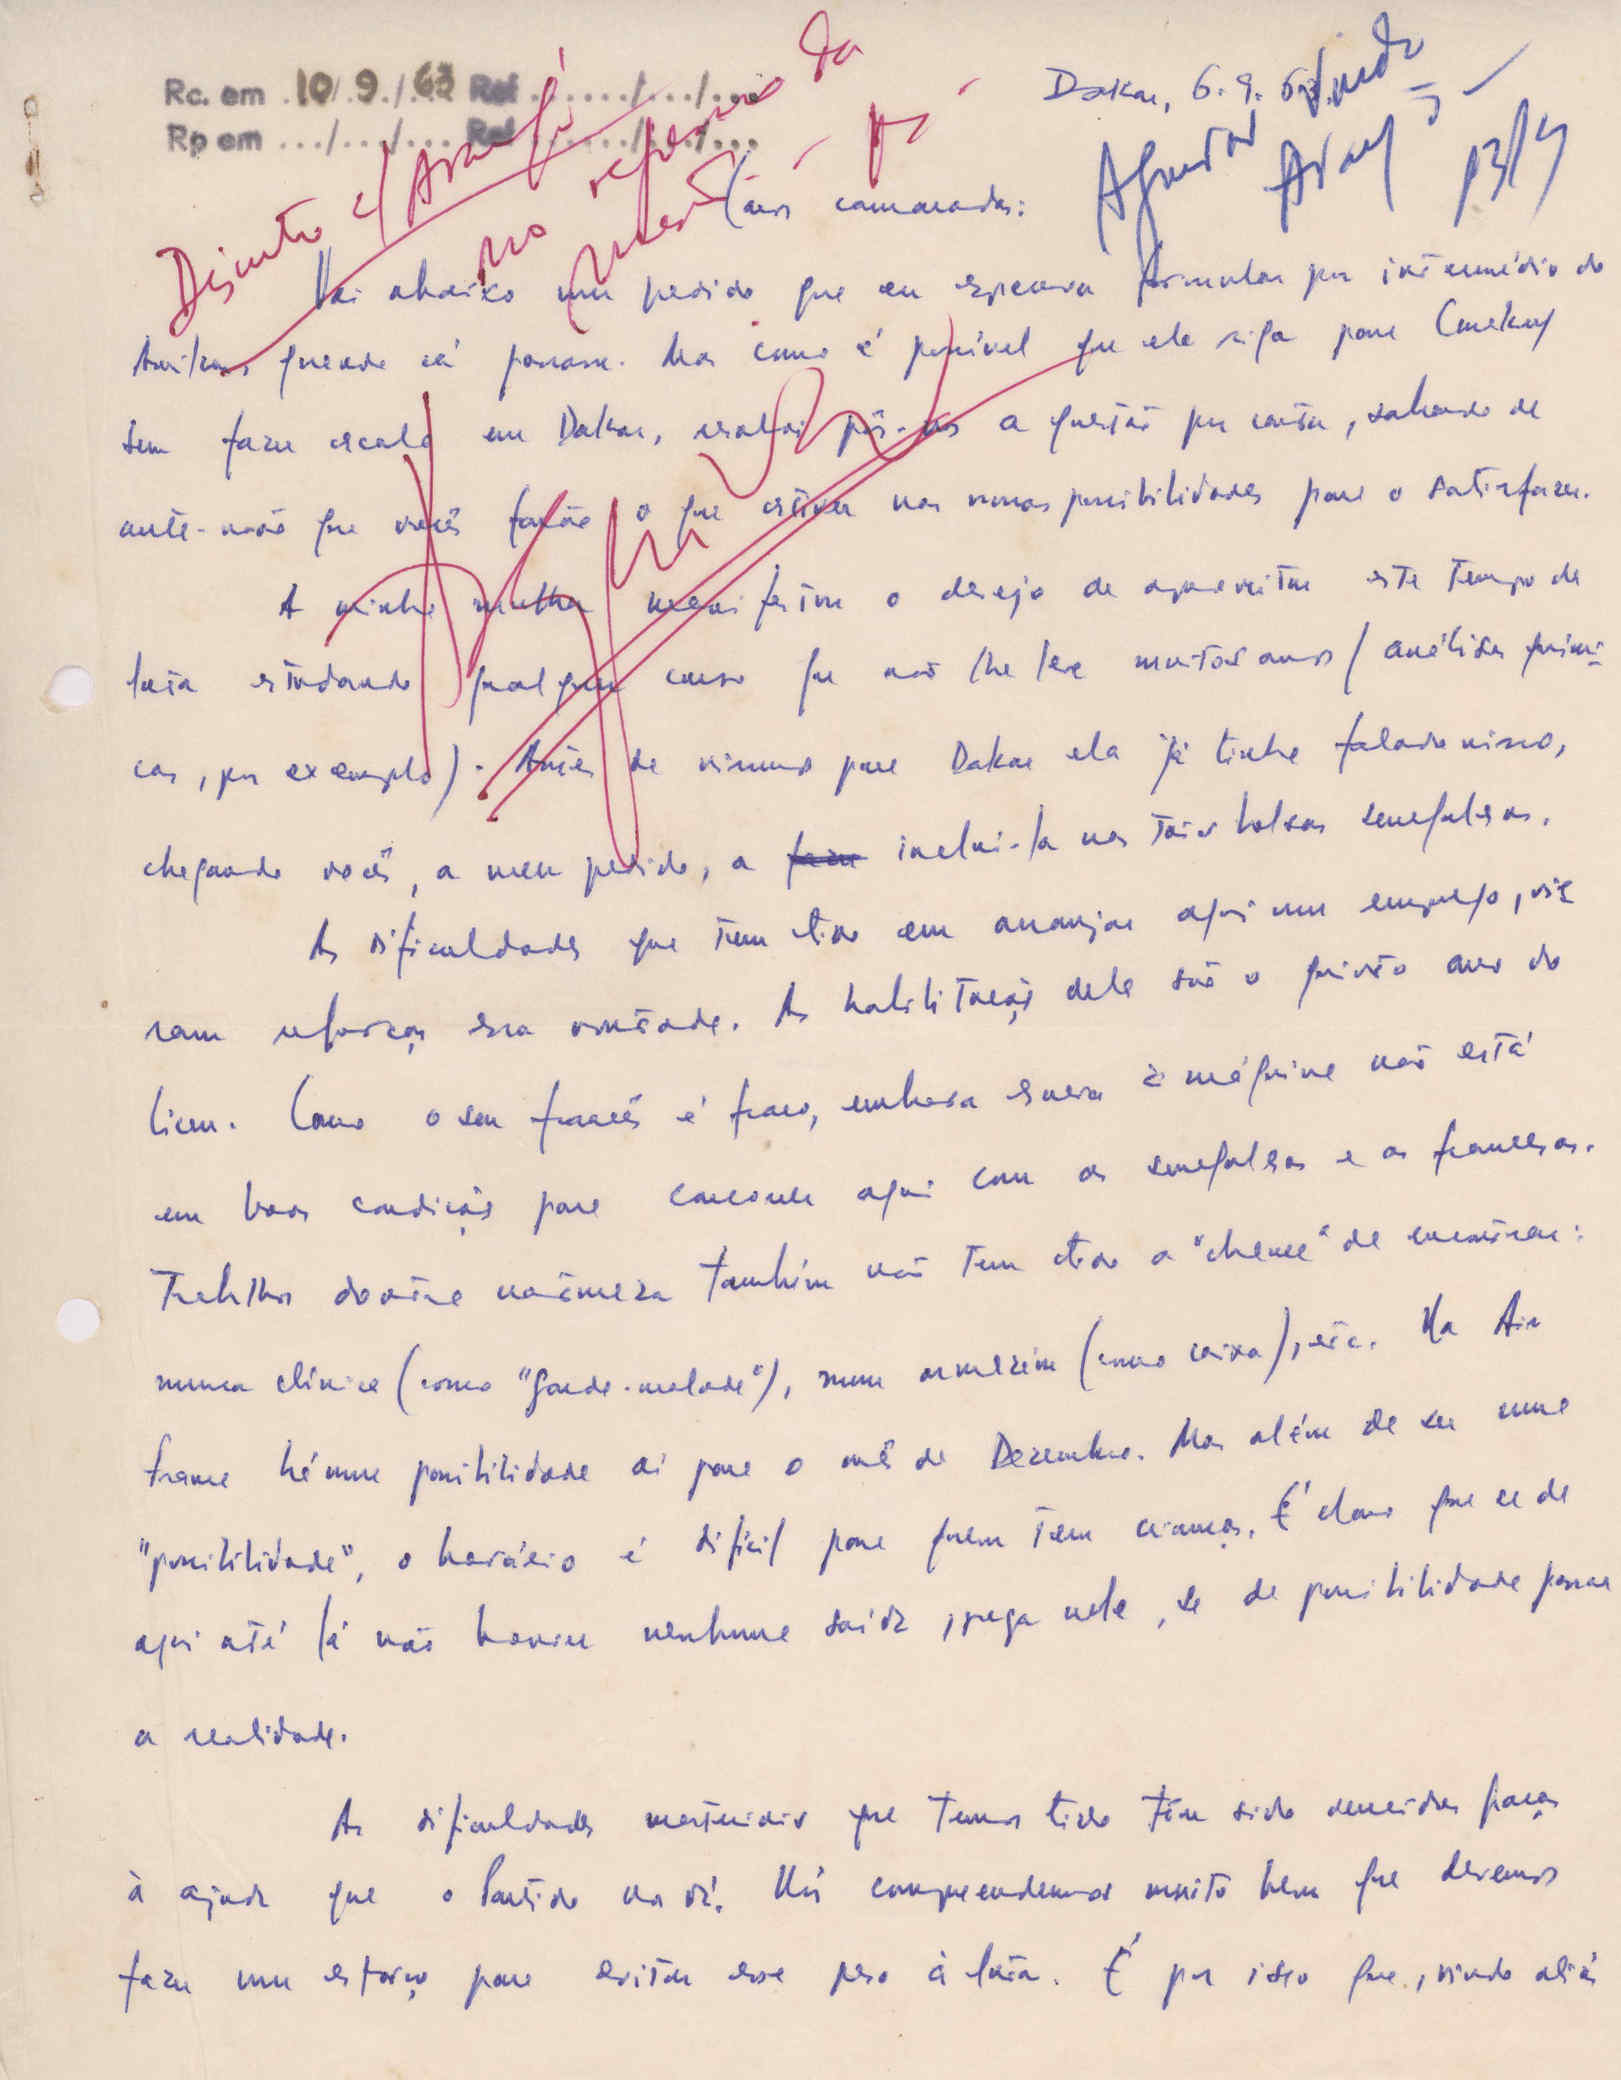 Rc. em 10/9/63 Ref ....../.../...
Rp em .../.../... Ref ....../.../...
Dakar, 6.9.63
Aguardar
Caros camaradas:
Vai abaixo um pedido que eu esperava formular por intermédio do
Amílcar quando cá passasse. Mas como é possível que ele siga para Conakry
sem fazer escala em Dakar, resolvi pôr-vos a questão por carta, sabendo de
ante-mão que vocês farão o que estiver nas vossas possibilidades para o satisfazer.
A minha mulher manifestou o desejo de aproveitar este tempo de
luta estudando qualquer curso que não lhe leve muitos anos (análises quími-
cas, por exemplo). Antes de virmos para Dakar ela já tinha falado nisso,
chegando vocês, a meu pedido, a incluí-la nas tais bolsas senegalesas.
As dificuldades que tem tido em arranjar aqui um emprego, vie
ram reforçar essa vontade. As habilitações dela são o quinto ano do
liceu. Como o seu francês é fraco, embora escreva à máquina não está
em boas condições para concorrer aqui com as senegalesas e as francesas.
Trabalhos doutra natureza também não tem tido a "chance" de encontrar:
numa clínica (como "garde-malade"), num armazém (como caixa), etc. Na Air
France há uma possibilidade aí para o mês de Dezembro. Mas além de ser uma
"possibilidade", o horário é difícil para quem tem crianças. É claro que se de
aqui até lá não houver nenhuma saída, pega nele, se de possibilidade passar
a realidade.
As dificuldades materiais que temos tido têm sido vencidas graças
à ajuda que o Partido nos dá. Nós compreendemos muito bem que devemos
fazer um esforço para evitar esse peso à luta. É por isso que, vindo aliás